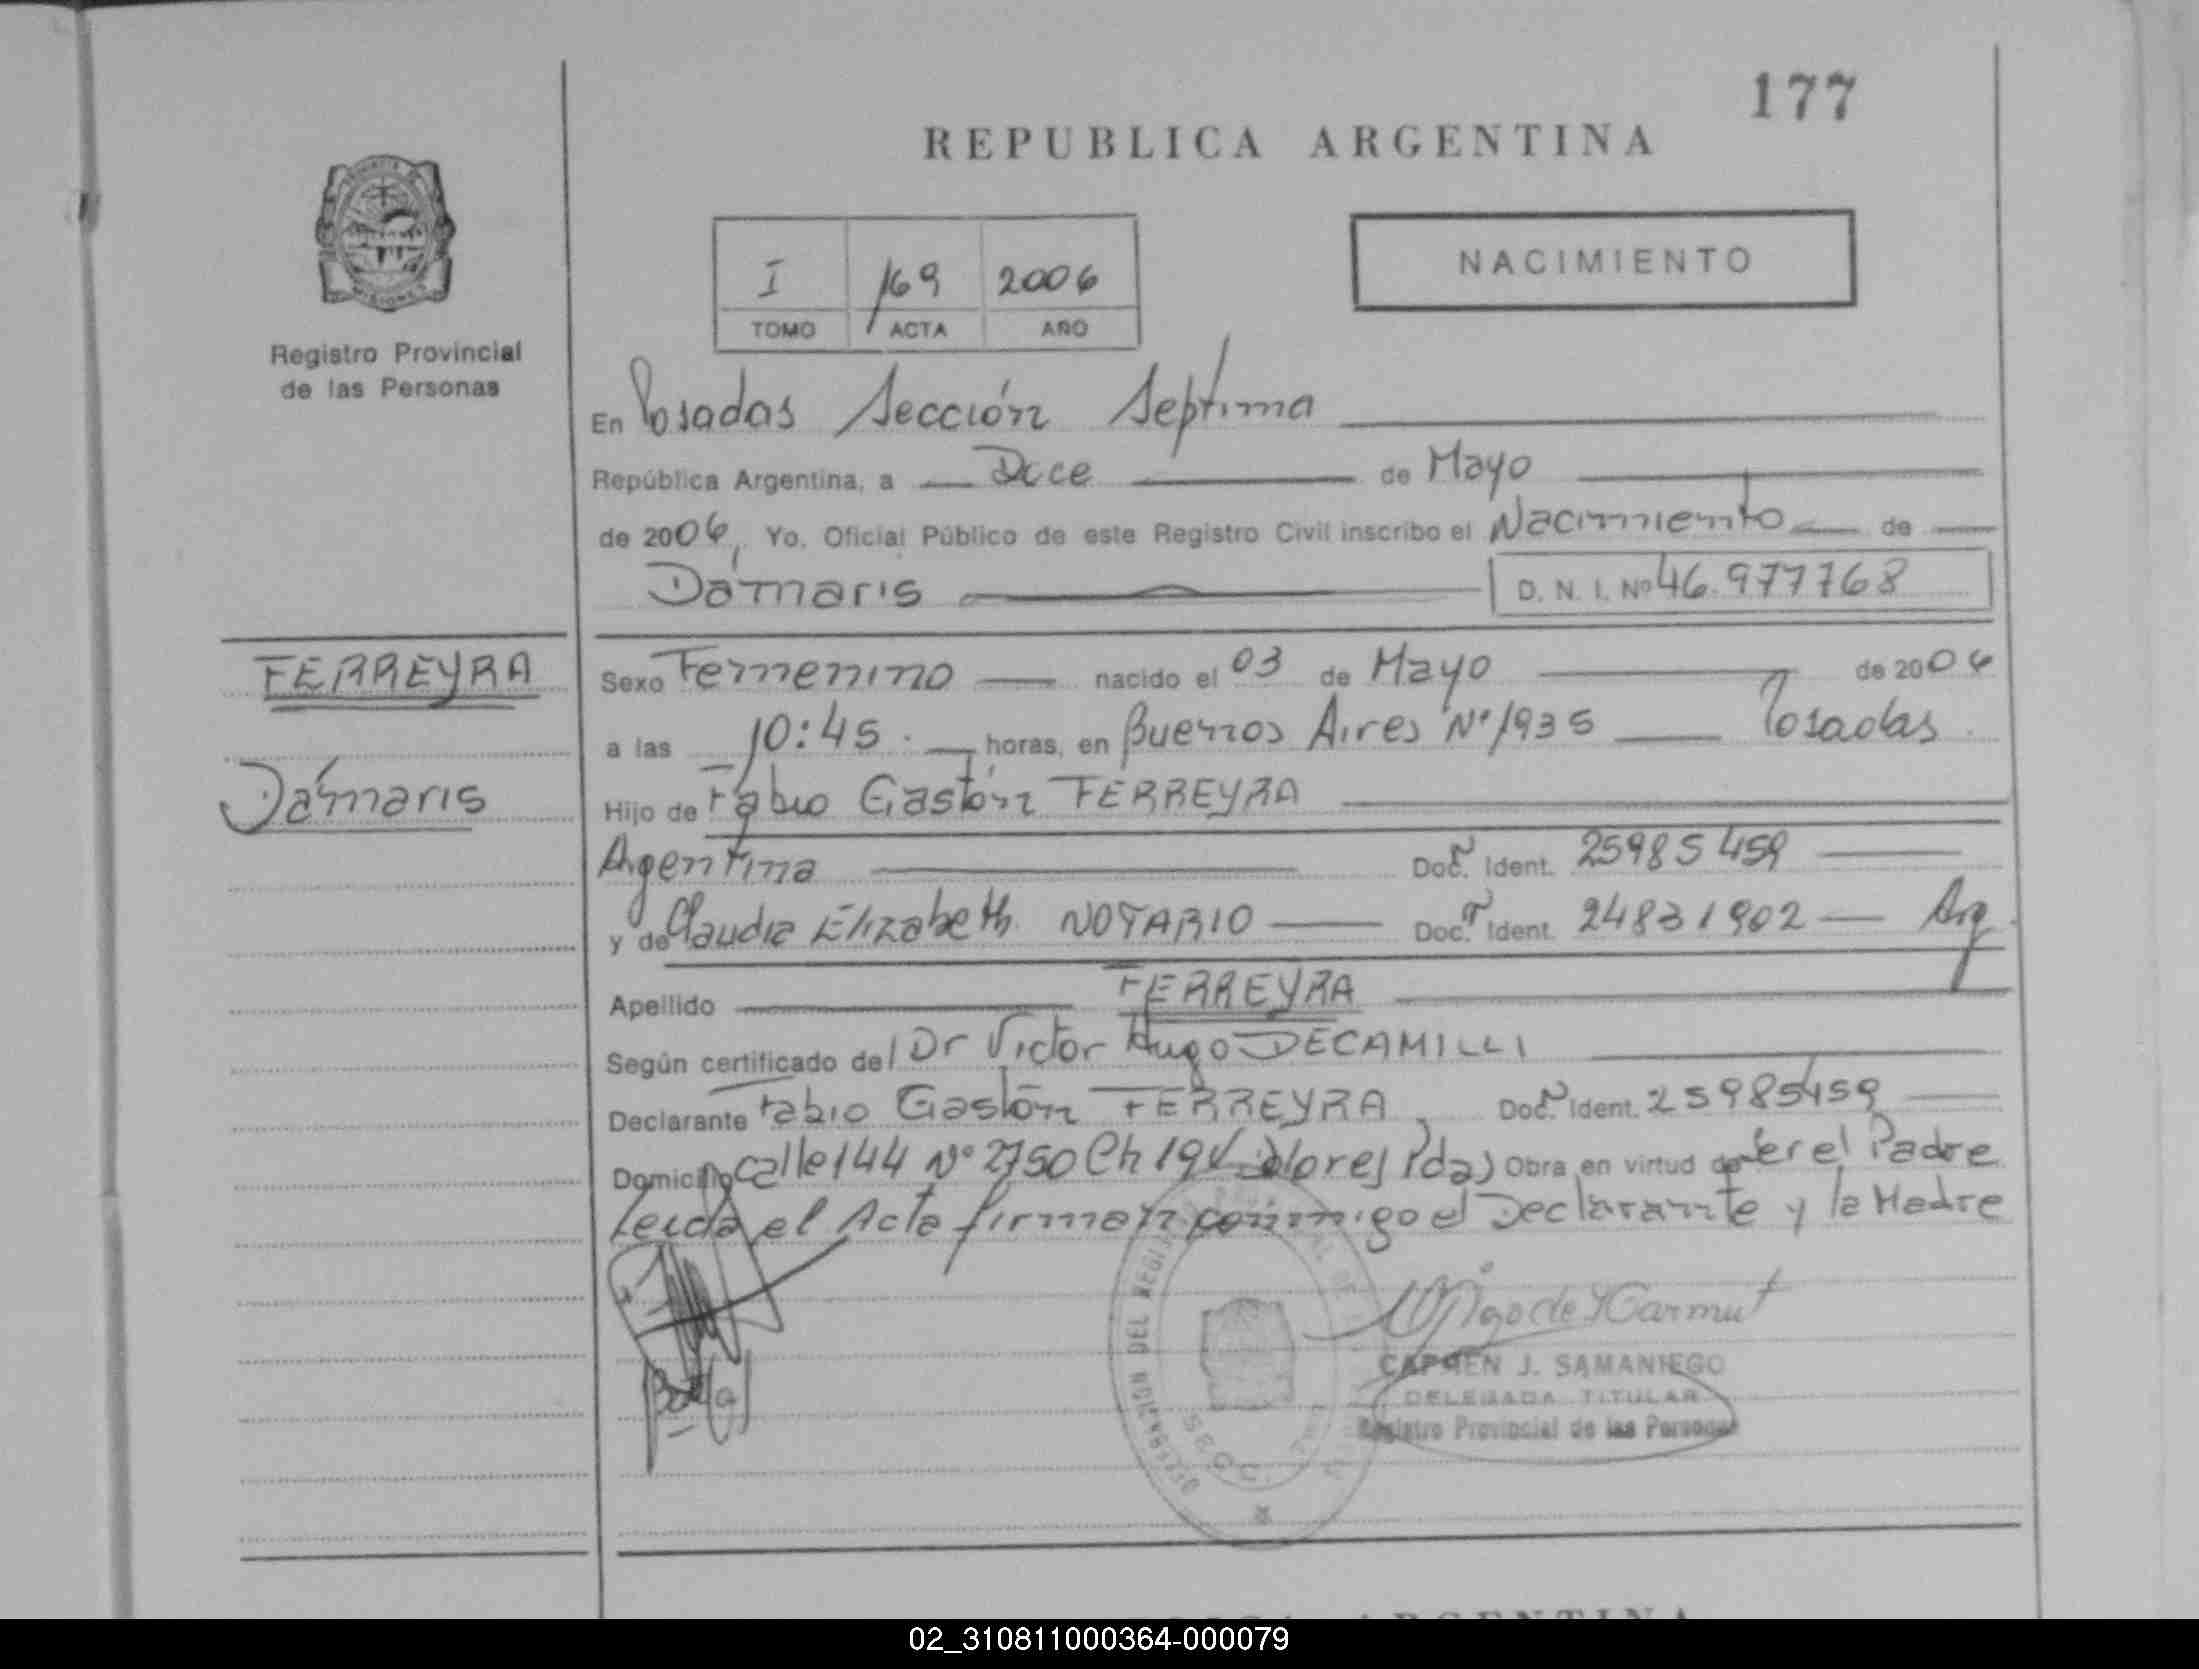 177
REPUBLICA ARGENTINA
I 169 2006
TOMO ACTA AÑO
NACIMIENTO
Registro Provincial
de las Personas
En Posadas Sección Septima
República Argentina, a Doce de Mayo
de 2006, Yo, Oficial Público de este Registro Civil inscribo el Nacimiento de
Dámaris D. N. I. Nº 46.977768
FERREYRA
Dámaris
Sexo Femenino nacido el 03 de Mayo de 2006
a las 10:45. horas, en Buenos Aires Nº 1935 Posadas
Hijo de Fabio Gastón FERREYRA
Argentina Doc. Ident. 25985459
y de Claudia Elizabeth NOTARIO Doc. Ident. 24831902 Arg.
Apellido FERREYRA
Según certificado del Dr Victor Hugo DECAMILLI
Declarante Fabio Gastón FERREYRA, Doc. Ident. 25985459
Domicilio calle 144 Nº 2750 Ch 19 Pdas Obra en virtud de Ser el Padre
Leida el Acta firman conmigo el Declarante y la Madre
CARMEN J. SAMANIEGO
DELEGADA TITULAR
Registro Provincial de las Personas
02_310811000364-000079